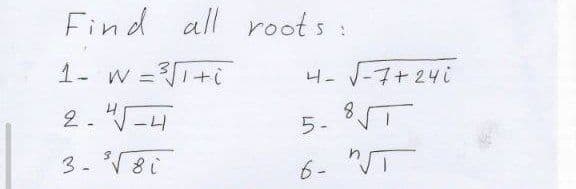 Find all roots :
1- W = ∛1+i
4- √-7+24i
2. ∜-4
5- ⁸√1
3- ³√8i
6- ⁿ√1